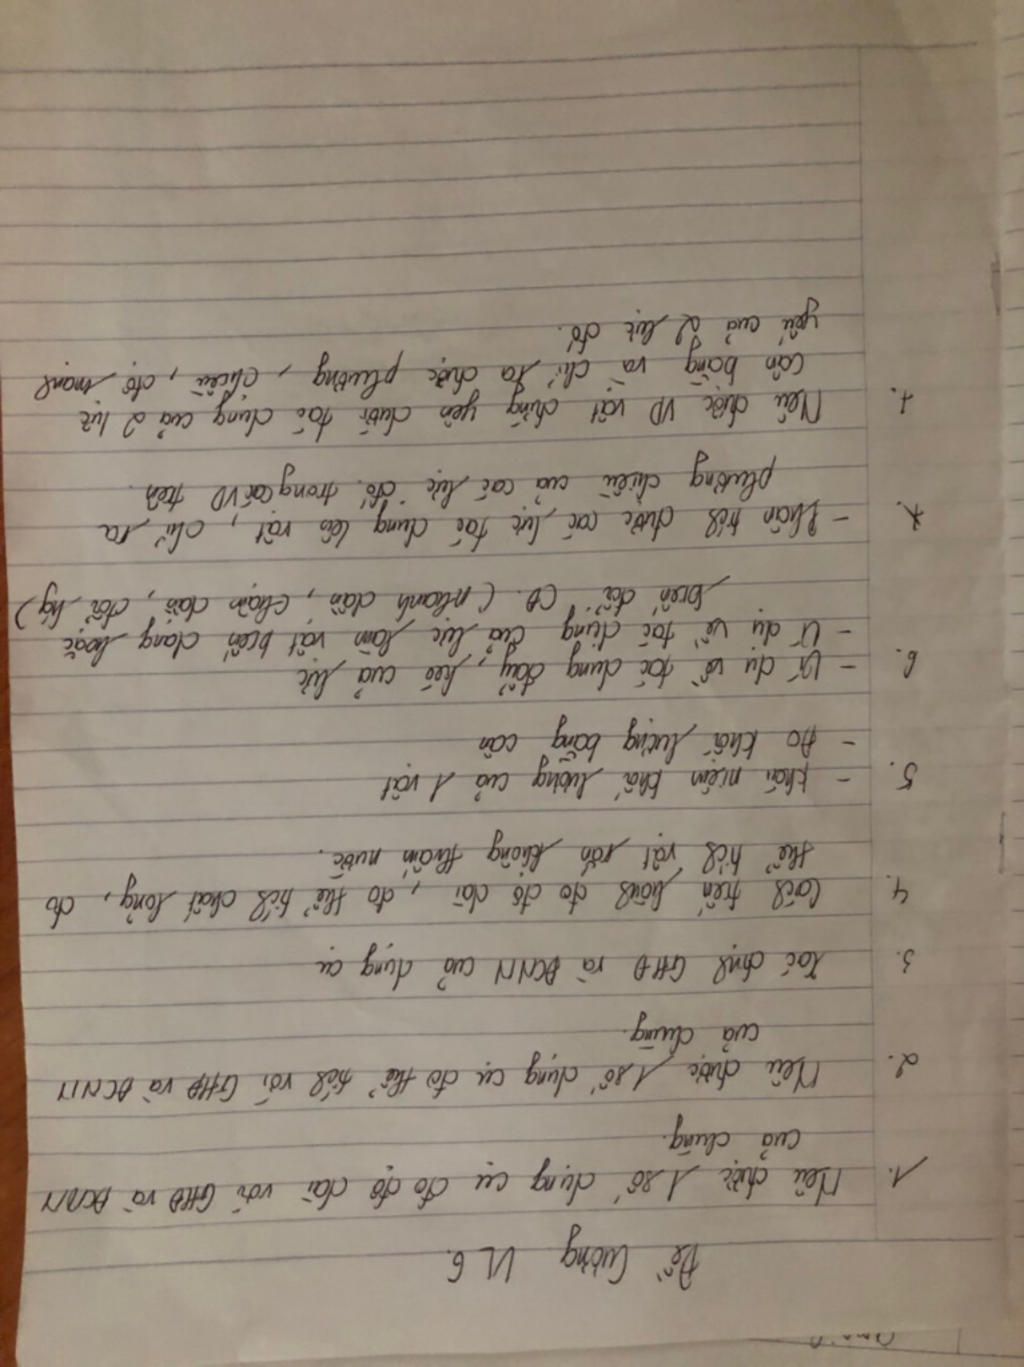 Đề Cương VL 6.
1. Nêu được 1 số dụng cụ đo độ dài với GHĐ và ĐCNN
của chúng.
2. Nêu được 1 số dụng cụ đo thể tích với GHĐ và ĐCNN
của chúng.
3. Xác định GHĐ và ĐCNN của dụng cụ
4. Cách tiến hành đo độ dài, đo thể tích chất lỏng, đo
thể tích vật rắn không thấm nước.
5. - Khái niệm khối lượng của 1 vật
- Đo khối lượng bằng cân
6. - Ví dụ về tác dụng đẩy, kéo của lực
- Ví dụ về tác dụng của lực làm vật biến dạng hoặc
biến đổi CĐ. (nhanh dần, chậm dần, đổi hg)
7. - Phân tích được các lực tác dụng lên vật, chỉ ra
phương chiều của các lực đó. trong các VD trên.
Nêu được VD vật đứng yên dưới tác dụng của 2 lực
cân bằng và chỉ ra được phương, chiều, độ mạnh
yếu của 2 lực đó.